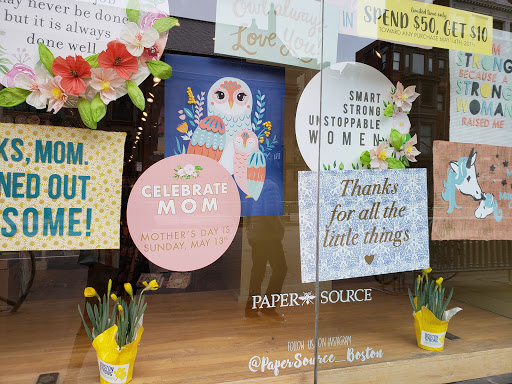 may never be done
but it is always
done well
Owl always
Love You
IN
limited time only
SPEND $50, GET $10
TOWARD ANY PURCHASE MAY 14TH
STRONG
BECAUSE A
STRONG
WOMAN
RAISED ME
SMART
STRONG
UNSTOPPABLE
WOMEN
KS, MOM.
NED OUT
SOME!
CELEBRATE
MOM
MOTHER'S DAY IS
SUNDAY, MAY 13TH
Thanks
for all the
little things
PAPER SOURCE
FOLLOW US ON INSTAGRAM
@PaperSource_Boston